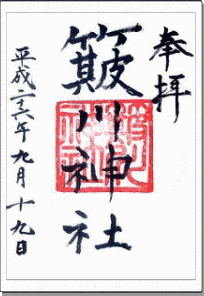 奉拝
簸川神社
平成二十六年九月十九日